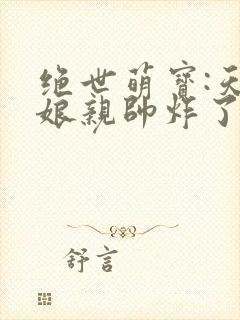 绝世萌寶:天
娘親帥炸了
舒言